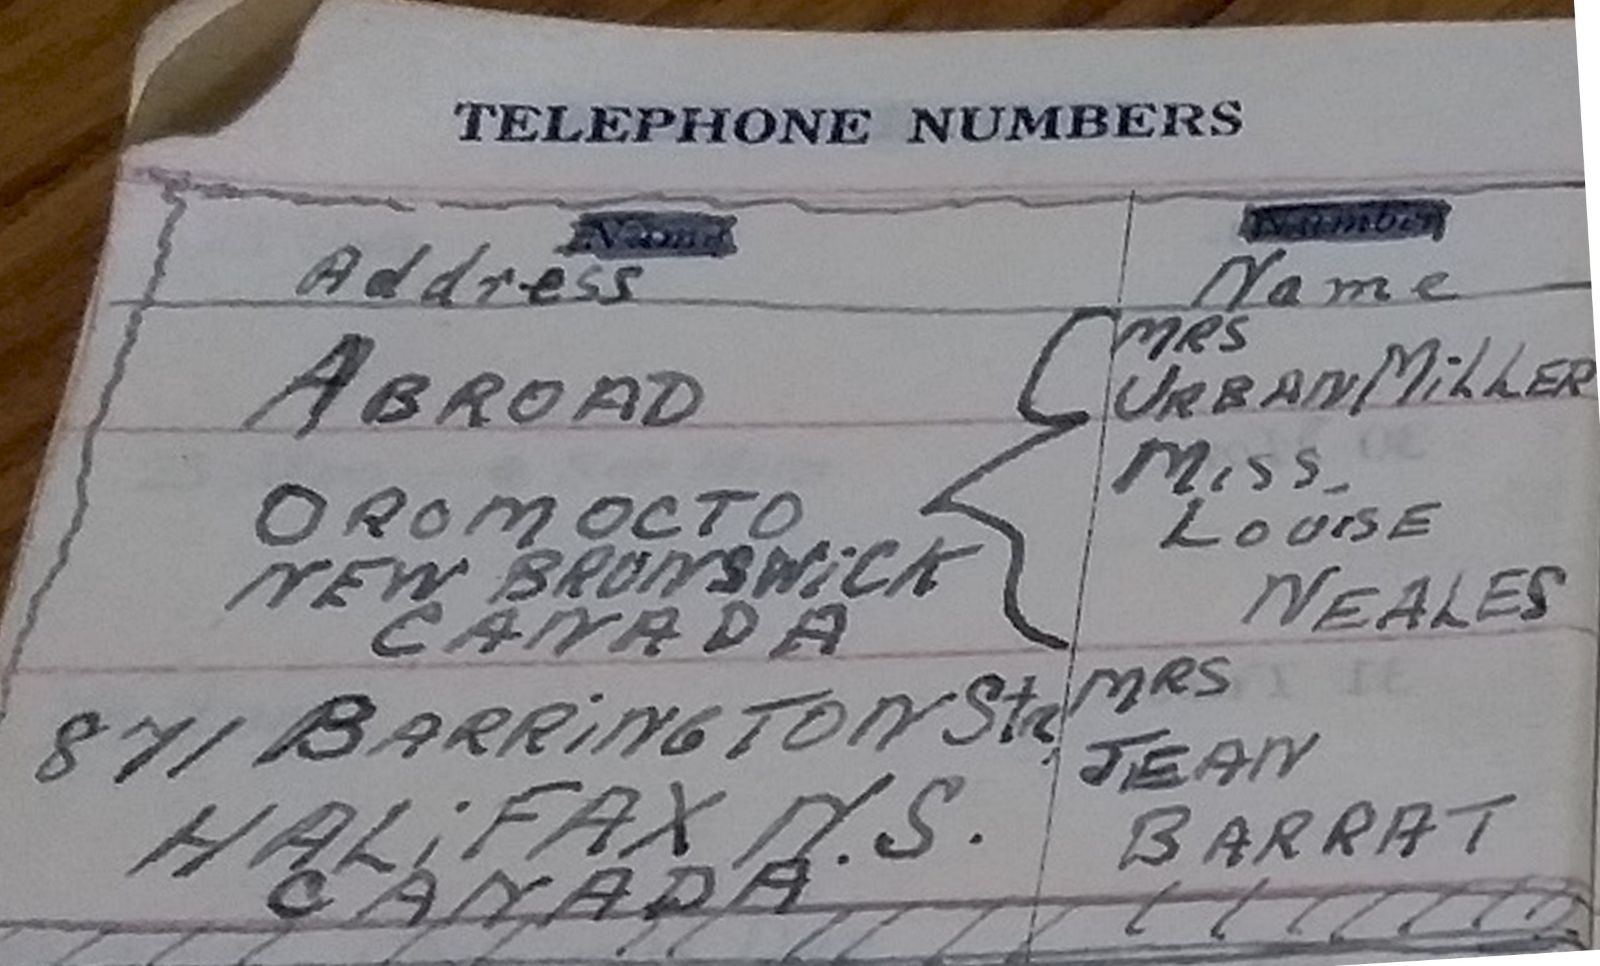 TELEPHONE NUMBERS
Name Number
Address Name
ABROAD
MRS
URBAN MiLLER
OROMOCTO
NEW BRUNSWiCK
CANADA
Miss
LOUISE
NEALES
871 BARRiNGTON Str,
HALiFAX N.S.
CANADA
MRS
JEAN
BARRAT